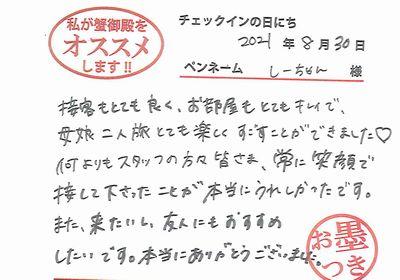 私が蟹御殿を
オススメ
します!!
チェックインの日にち
2021年8月30日
ペンネーム しーちゃん 様
接客もとても良く、お部屋もとてもキレイで、
母娘二人旅とても楽しくすごすことができました♡
何よりもスタッフの方々皆さま、常に笑顔で
接して下さったことが本当にうれしかったです。
また、来たいし、友人にもおすすめ
したいです。本当にありがとうございました。
お墨
つき